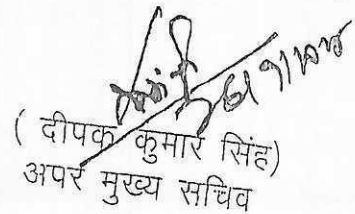 ( दीपक कुमार सिंह)
अपर मुख्य सचिव